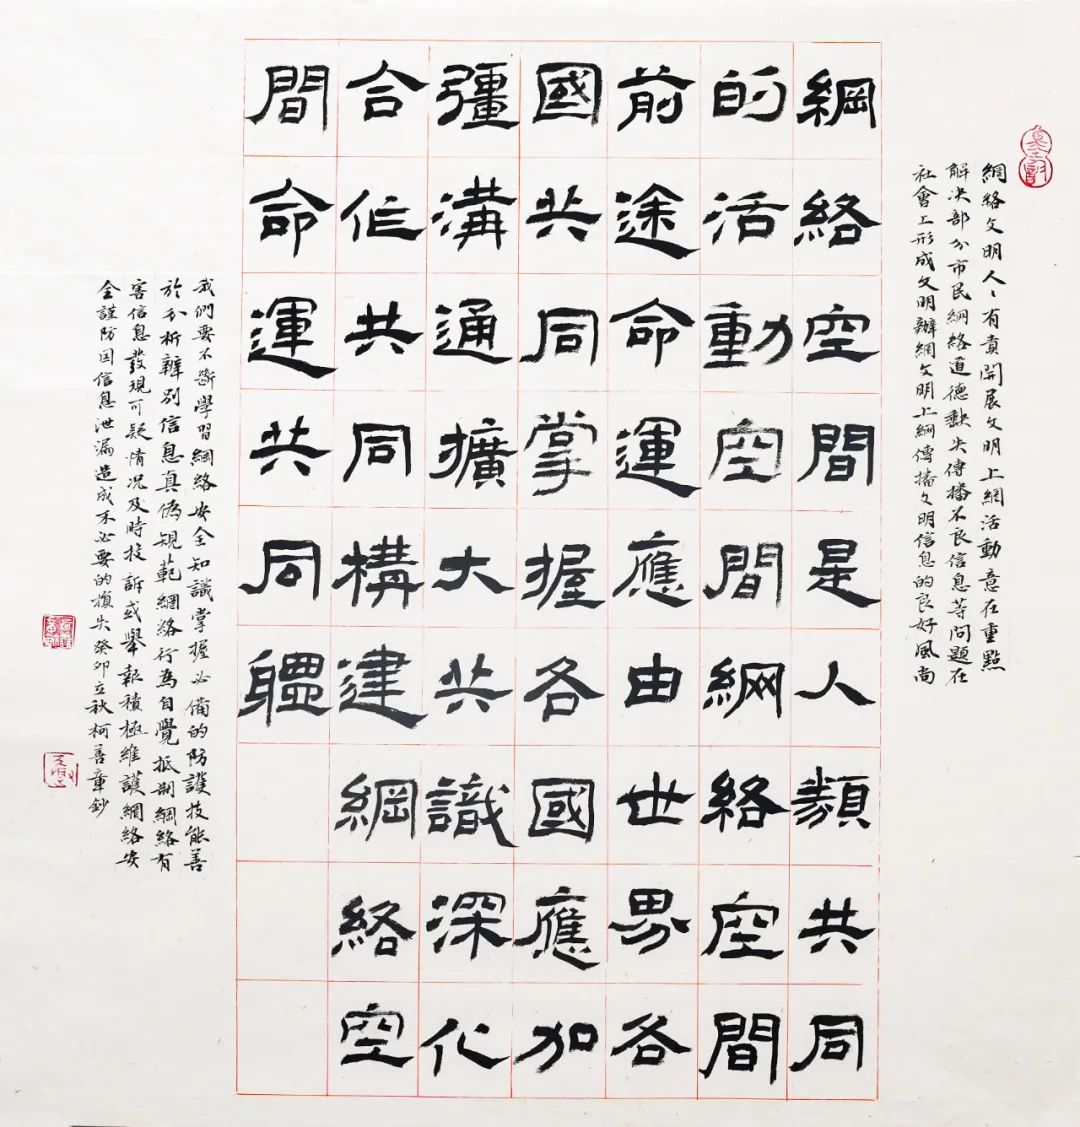 網絡文明人〻有責開展文明上網活動意在重點
解决部分市民網絡道德缺失傳播不良信息等問題在
社會上形成文明辦網文明上網傳播文明信息的良好風尚
綱絡空間是人類共同
的活動空間網絡空間
前途命運應由世界各
國共同掌握各國應加
彊溝通擴大共識深化
合作共同構建綱絡空
間命運共同軆
我們要不斷學習網絡安全知識掌握必備的防護技能善
於分析辨別信息真偽規範網絡行為自覺抵制網絡有
害信息發現可疑情况及時投訴或舉報積極維護網絡安
全謹防因信息泄漏造成不必要的損失癸卯立秋柯善章鈔